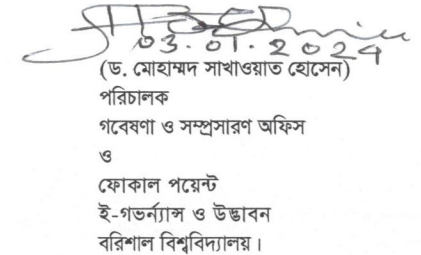 03.01.2024
(ড. মোহাম্মদ সাখাওয়াত হোসেন)
পরিচালক
গবেষণা ও সম্প্রসারণ অফিস
ও
ফোকাল পয়েন্ট
ই-গভর্ন্যান্স ও উদ্ভাবন
বরিশাল বিশ্ববিদ্যালয়।